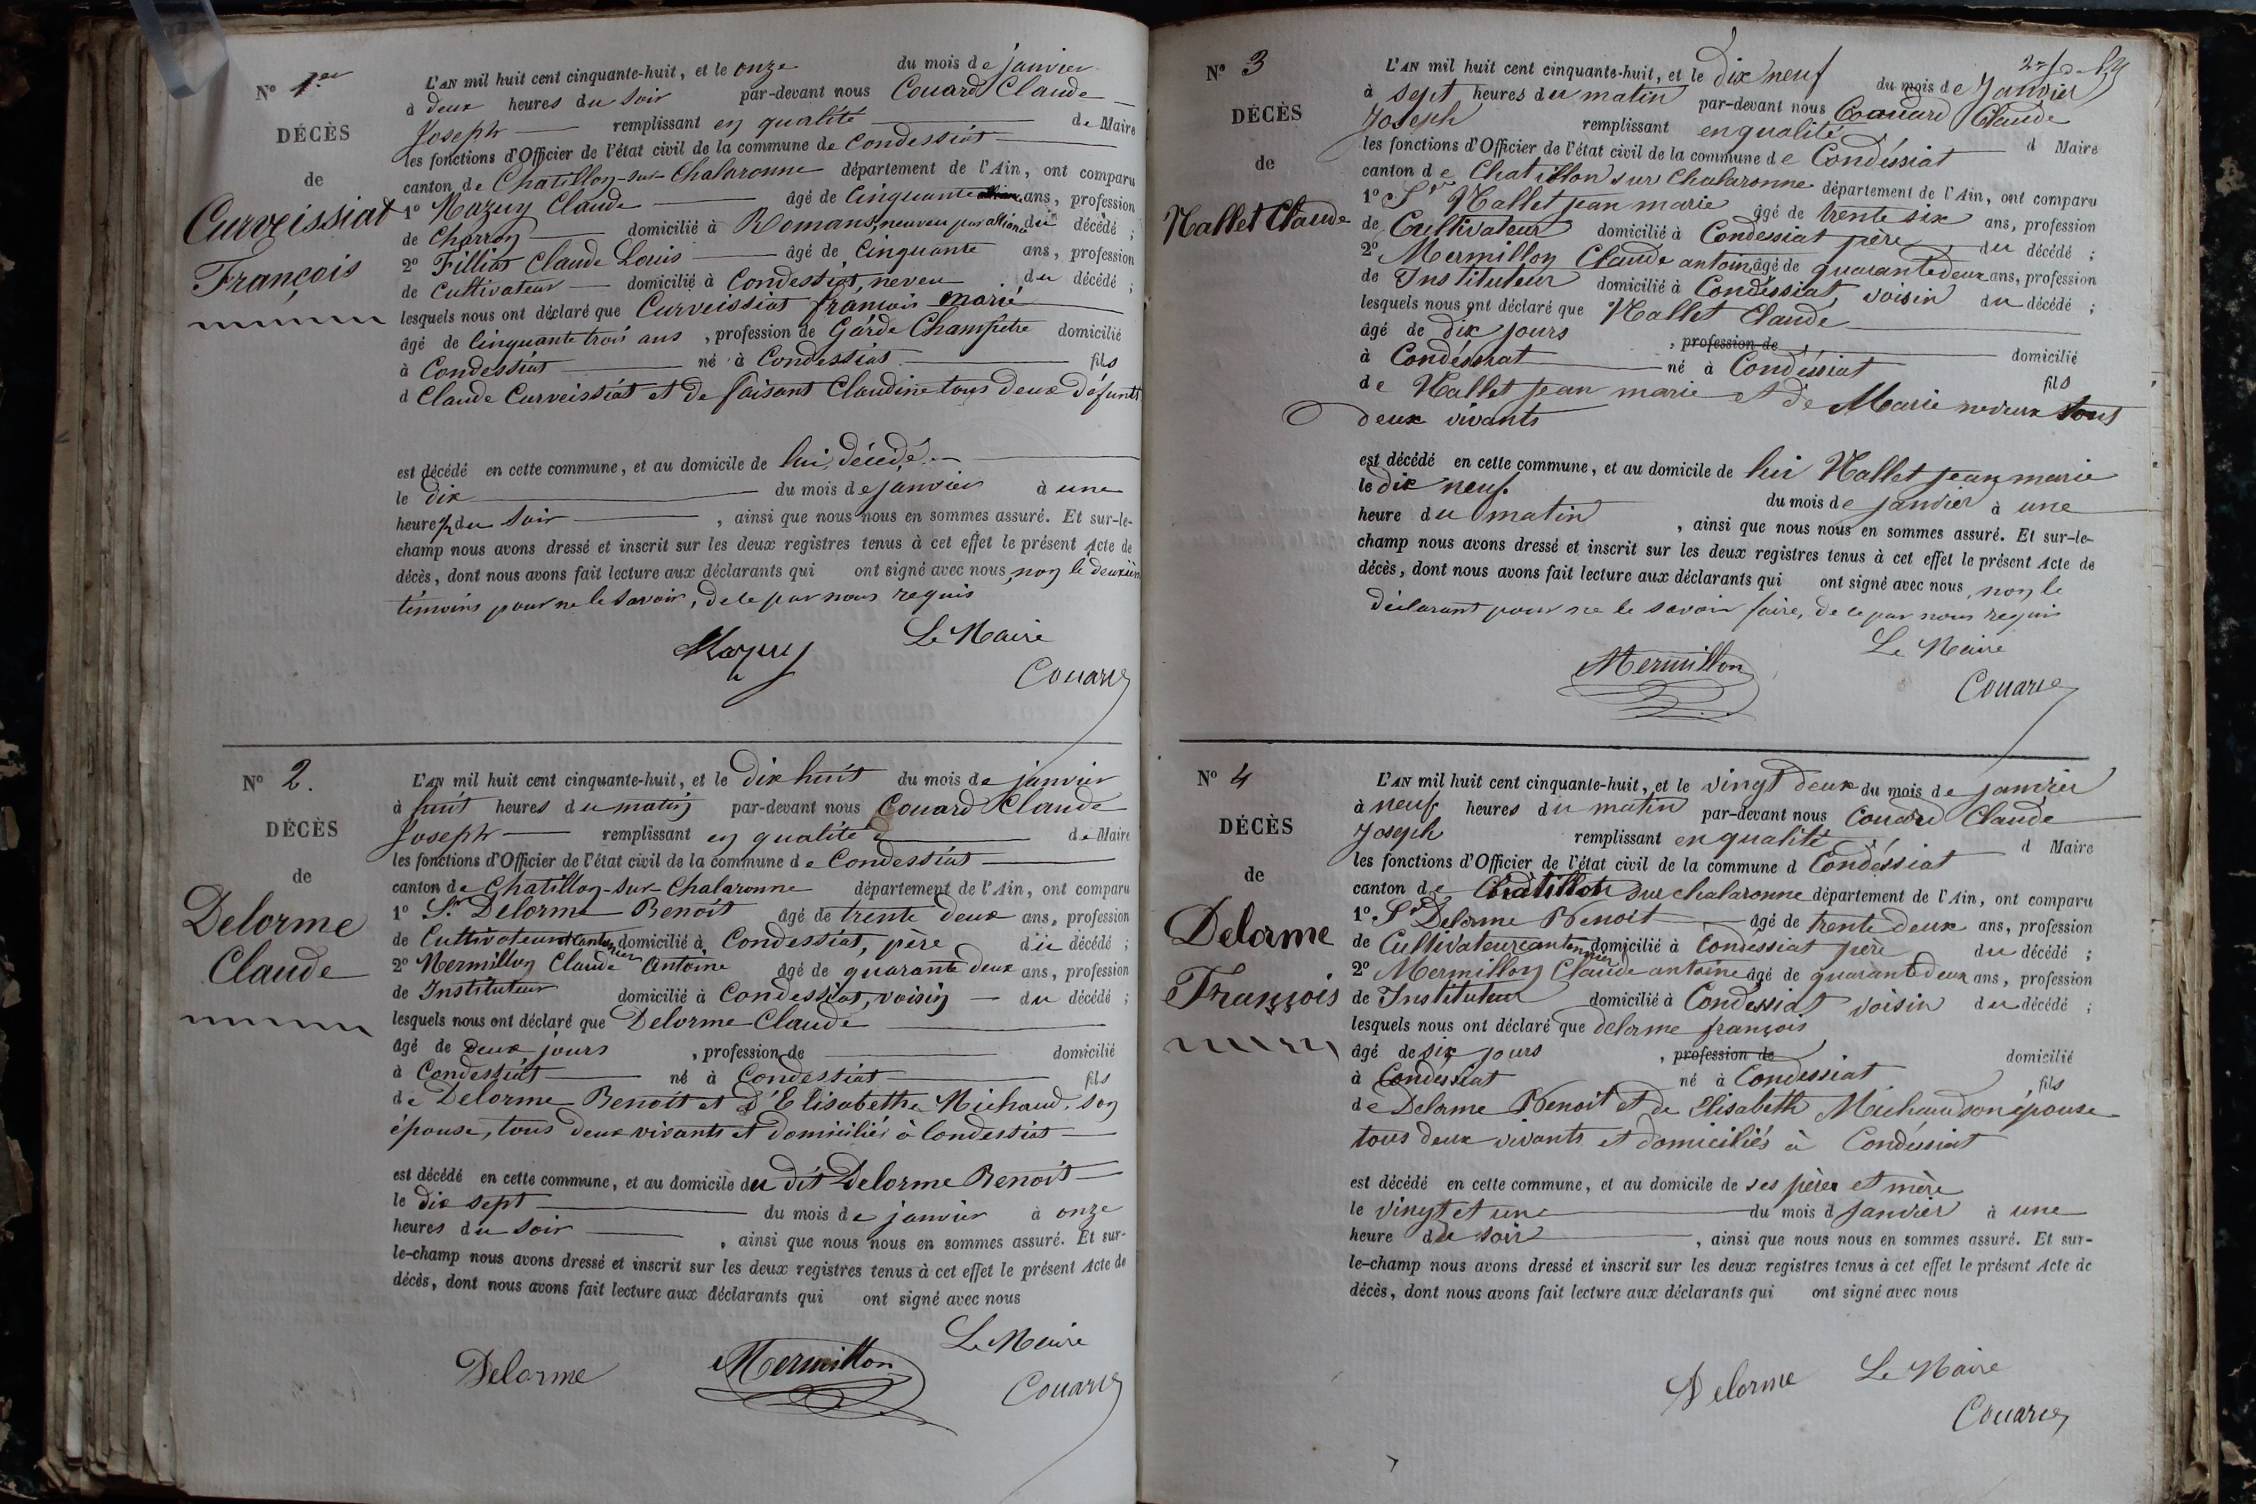 N° 1.er
DÉCÈS
de
Curveissiat
François
L'AN mil huit cent cinquante-huit, et le onze du mois de janvier
à deux heures du soir par-devant nous Couard Claude
Joseph remplissant en qualité de Maire
les fonctions d'Officier de l'état civil de la commune de Condessiat
canton de Chatillon-sur-Chalaronne département de l'Ain, ont comparu
1° Mazuy Claude âgé de Cinquante ans, profession
de Charron domicilié à Romans, neveu par alliance du décédé ;
2° Filliat Claude Louis âgé de Cinquante ans, profession
de Cultivateur domicilié à Condessiat, neveu du décédé ;
lesquels nous ont déclaré que Curveissiat françois marié
âgé de Cinquante trois ans , profession de Garde Champêtre domicilié
à Condessiat né à Condessiat fils
d Claude Curveissiat et de faisant Claudine tous deux défunts
est décédé en cette commune, et au domicile de lui, décédé.
le dix du mois de janvier à une
heure du soir , ainsi que nous nous en sommes assuré. Et sur-le-
champ nous avons dressé et inscrit sur les deux registres tenus à cet effet le présent Acte de
décès, dont nous avons fait lecture aux déclarants qui ont signé avec nous, non le deuxièm
témoins pour ne le savoir, de ce par nous requis
Mazuy Le Maire
Couard
N° 2.
DÉCÈS
de
Delorme
Claude
L'AN mil huit cent cinquante-huit, et le dix huit du mois de janvier
à huit heures du matin par-devant nous Couard Claude
Joseph remplissant en qualité de Maire
les fonctions d'Officier de l'état civil de la commune de Condessiat
canton de Chatillon-sur-Chalaronne département de l'Ain, ont comparu
1° Sr Delorme Benoit âgé de trente deux ans, profession
de Cultivateur cantonnier domicilié à Condessiat, père du décédé ;
2° Mermillon Claude Antoine âgé de quarante deux ans, profession
de Instituteur domicilié à Condessiat, voisin du décédé ;
lesquels nous ont déclaré que Delorme Claude
âgé de deux jours , profession de domicilié
à Condessiat né à Condessiat fils
de Delorme Benoit et d'Elisabethe Michaud, son
épouse, tous deux vivants et domiciliés à Condessiat
est décédé en cette commune, et au domicile du dit Delorme Benoit
le dix sept du mois de janvier à onze
heures du soir , ainsi que nous nous en sommes assuré. Et sur-
le-champ nous avons dressé et inscrit sur les deux registres tenus à cet effet le présent Acte de
décès, dont nous avons fait lecture aux déclarants qui ont signé avec nous
Delorme Mermillon Le Maire
Couard
N° 3
DÉCÈS
de
Mallet Claude
L'AN mil huit cent cinquante-huit, et le Dix neuf du mois de Janvier
à sept heures du matin par-devant nous Couard Claude
Joseph remplissant en qualité d Maire
les fonctions d'Officier de l'état civil de la commune de Condéssiat
canton de Chatillon sur Chalaronne département de l'Ain, ont comparu
1° Sr Mallet Jean marie âgé de trente six ans, profession
de Cultivateur domicilié à Condessiat père du décédé ;
2° Mermillon Claude antoine âgé de quarante deux ans, profession
de Instituteur domicilié à Condessiat, voisin du décédé ;
lesquels nous ont déclaré que Mallet Claude
âgé de dix jours , profession de domicilié
à Condessiat né à Condéssiat fils
de Mallet Jean marie et de Marie tous
deux vivants
est décédé en cette commune, et au domicile de lui Mallet Jean marie
le dix neuf du mois de janvier à une
heure du matin , ainsi que nous nous en sommes assuré. Et sur-le-
champ nous avons dressé et inscrit sur les deux registres tenus à cet effet le présent Acte de
décès, dont nous avons fait lecture aux déclarants qui ont signé avec nous, non le
déclarant pour ne le savoir faire, de ce par nous requis
Mermillon Le Maire
Couard
N° 4
DÉCÈS
de
Delorme
François
L'AN mil huit cent cinquante-huit, et le vingt deux du mois de janvier
à neuf heures du matin par-devant nous Couard Claude
Joseph remplissant en qualité d Maire
les fonctions d'Officier de l'état civil de la commune d Condéssiat
canton de Chatillon sur chalaronne département de l'Ain, ont comparu
1° Sr Delorme Benoit âgé de trente deux ans, profession
de Cultivateur cantonnier domicilié à Condessiat père du décédé ;
2° Mermillon Claude antoine âgé de quarante deux ans, profession
de Instituteur domicilié à Condéssiat voisin du décédé ;
lesquels nous ont déclaré que delorme françois
âgé de six jours , profession de domicilié
à Condéssiat né à Condessiat fils
de Delorme Benoit et de Elisabeth Michaud son épouse
tous deux vivants et domiciliés à Condéssiat
est décédé en cette commune, et au domicile de ses pères et mère
le vingt et une du mois d Janvier à une
heure du soir , ainsi que nous nous en sommes assuré. Et sur-
le-champ nous avons dressé et inscrit sur les deux registres tenus à cet effet le présent Acte de
décès, dont nous avons fait lecture aux déclarants qui ont signé avec nous
Delorme Le Maire
Couard